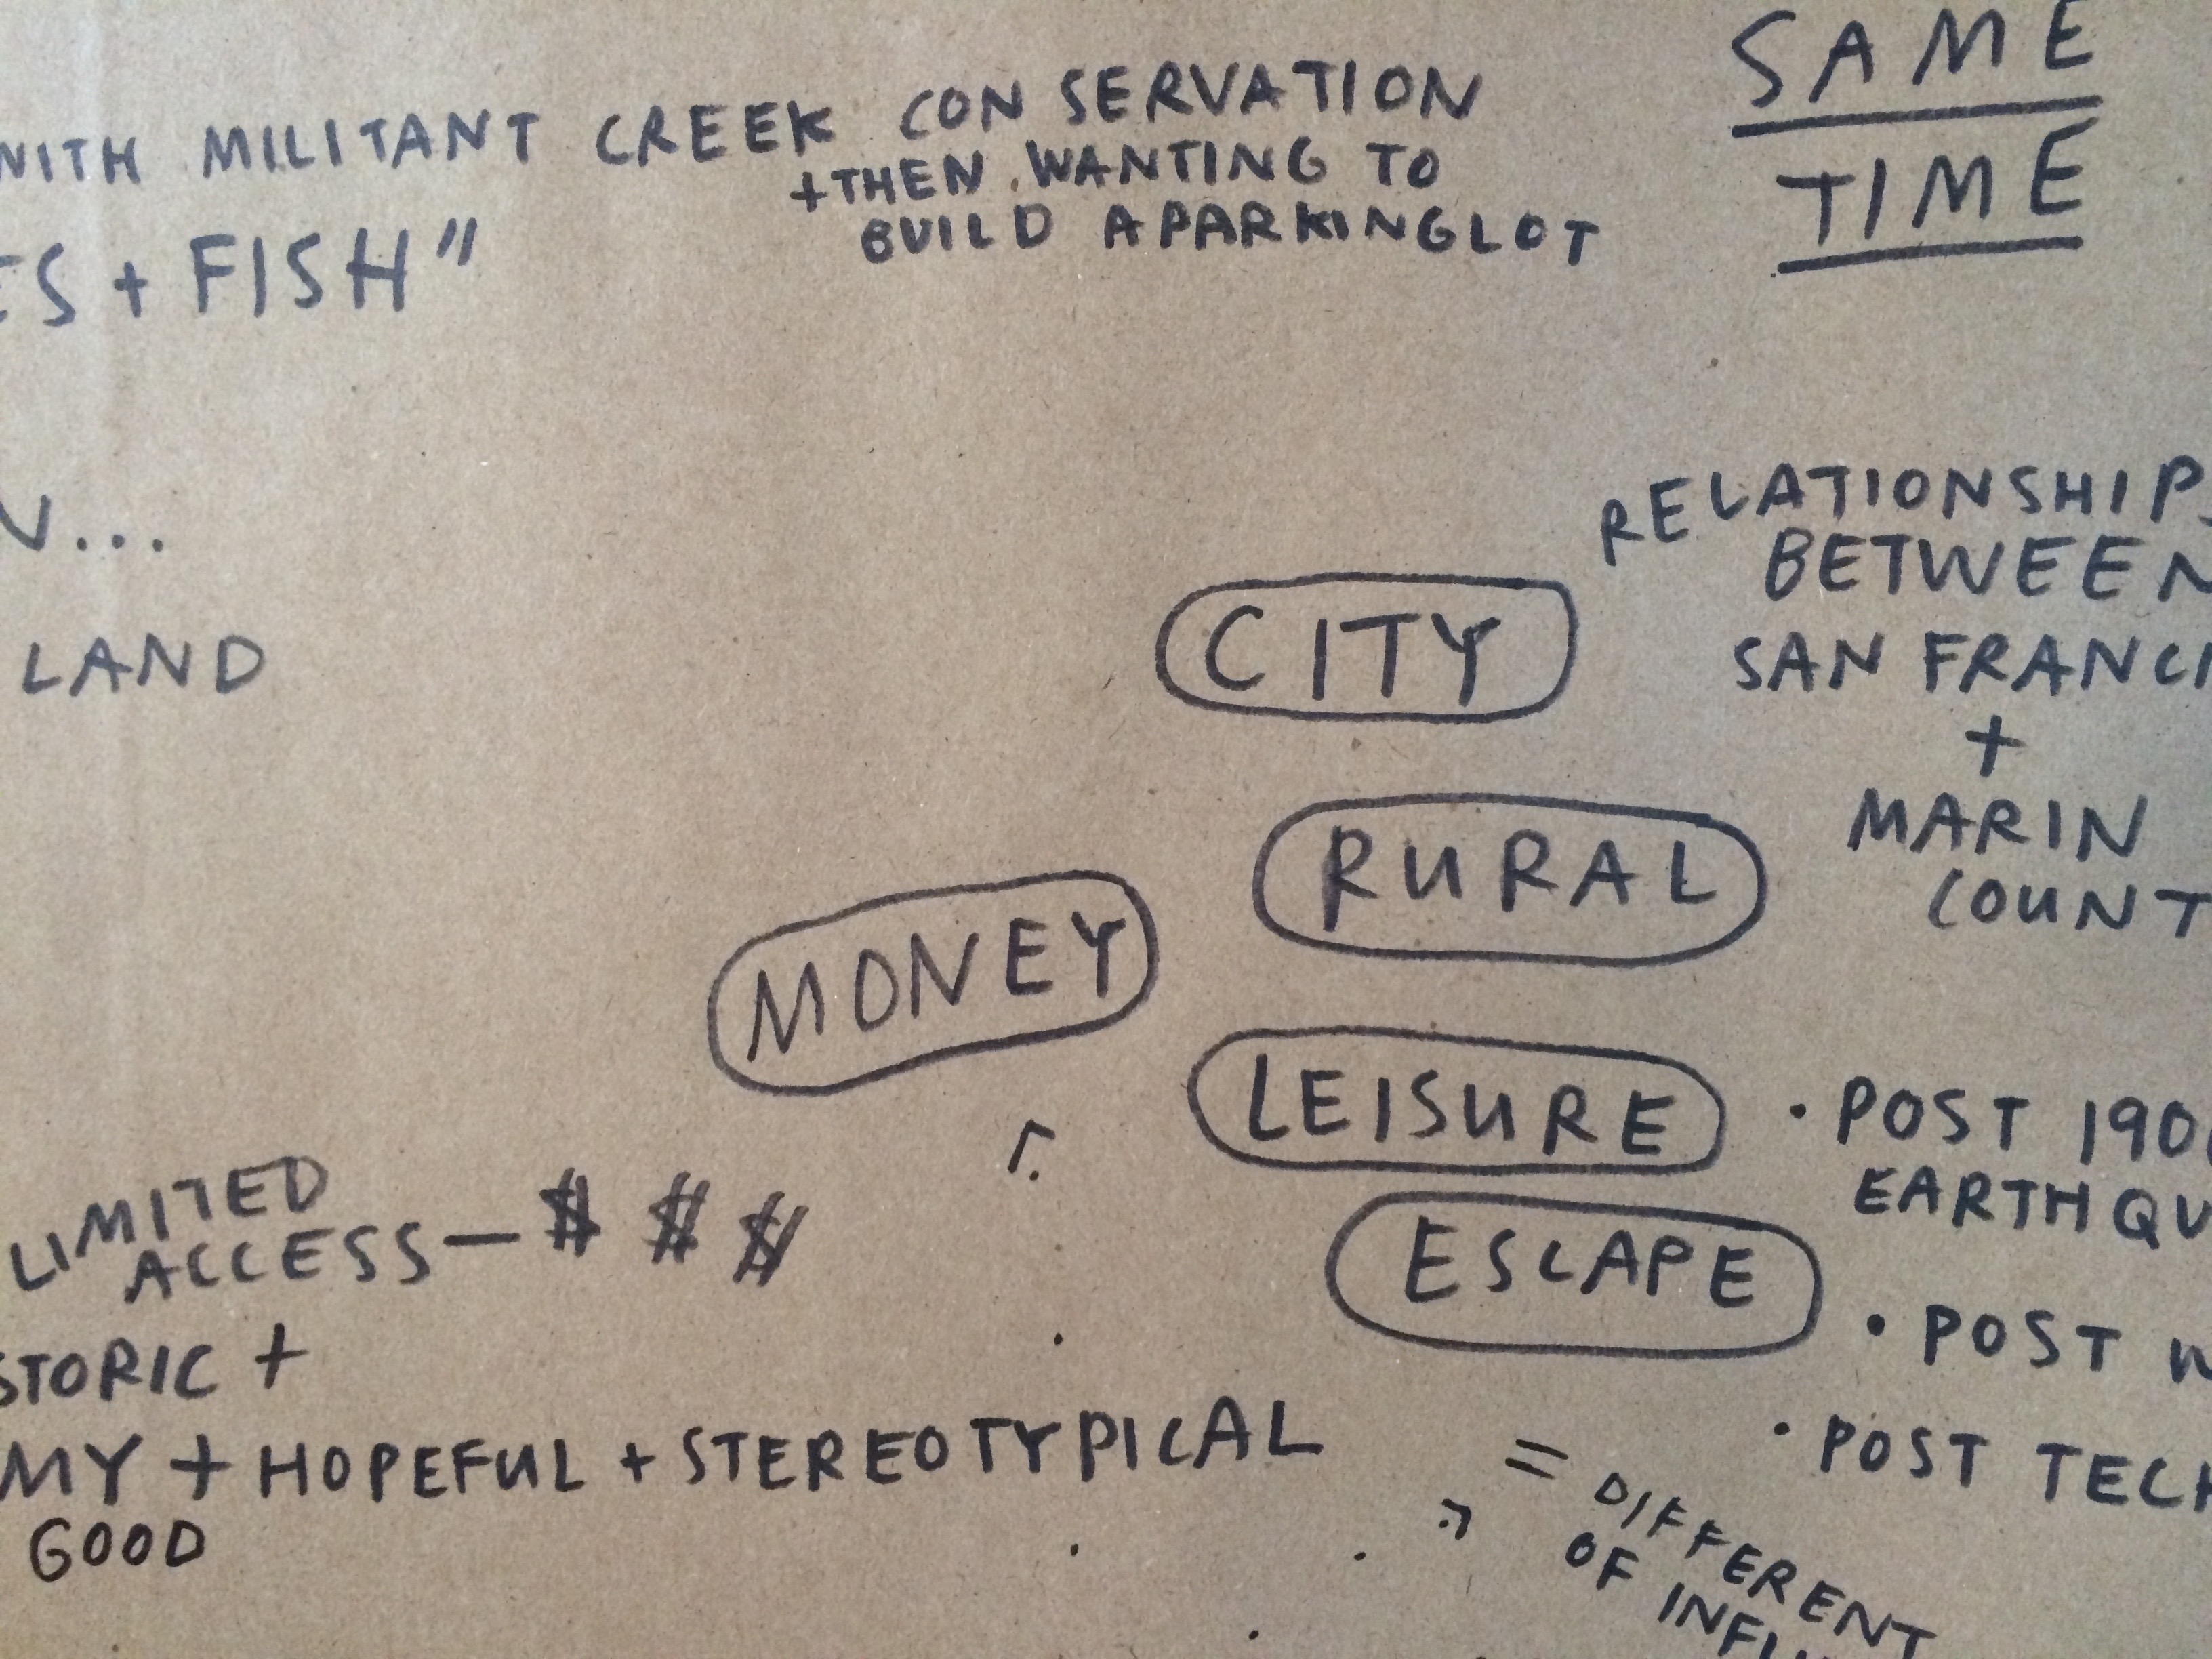 SAME
TIME
WITH MILITANT CREEK CONSERVATION
+ THEN WANTING TO
BUILD A PARKINGLOT
ES + FISH"
N...
LAND
RELATIONSHIPS
BETWEEN
SAN FRANCI
+
MARIN
COUNT
CITY
RURAL
MONEY
LEISURE
ESCAPE
• POST 190
EARTHQU
• POST W
• POST TECH
LIMITED
ACCESS — $ $ $
STORIC +
MY + HOPEFUL + STEREOTYPICAL
GOOD
= DIFFERENT
OF INFLU